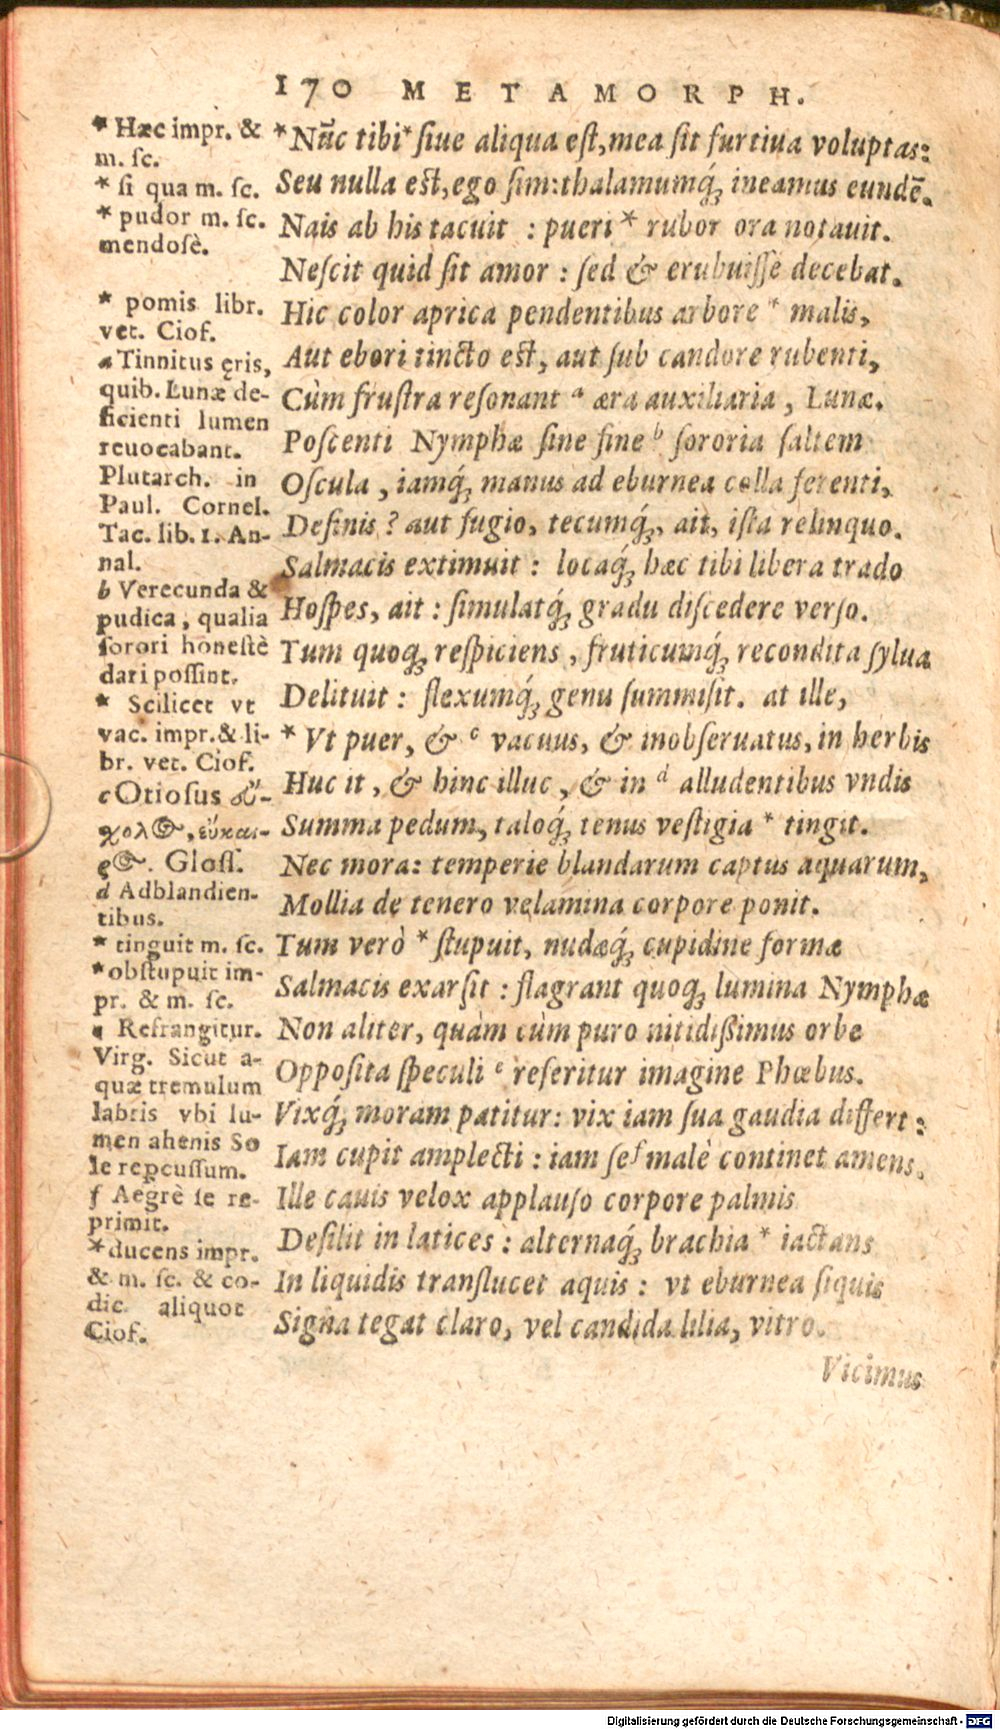 170 METAMORPH.
* Hæc impr. &
m. ſc.
* ſi qua m. ſc.
* pudor m. ſc.
mendoſè.
* pomis libr.
vet. Cioſ.
a Tinnitus ęris,
quib. Lunæ de-
ficienti lumen
reuocabant.
Plutarch. in
Paul. Cornel.
Tac. lib. 1. An-
nal.
b Verecunda &
pudica, qualia
ſorori honeſtè
dari poſſint.
* Scilicet vt
vac. impr. & li-
br. vet. Cioſ.
c Otioſus
Gloſſ.
d Adblandien-
tibus.
* tinguit m. ſc.
* obſtupuit im-
pr. & m. ſc.
Refrangitur.
Virg. Sicut a-
quæ tremulum
labris vbi lu-
men ahenis So
le repcuſſum.
f Aegrè ſe re-
primit.
* ducens impr.
& m. ſc. & co-
dic. aliquot
Cioſ.
*Nūc tibi* ſiue aliqua eſt, mea ſit furtiua voluptas:
Seu nulla eſt, ego ſim: thalamumq́; ineamus eundē.
Nais ab his tacuit : pueri * rubor ora notauit.
Neſcit quid ſit amor : ſed & erubuiſſe decebat.
Hic color aprica pendentibus arbore * malis,
Aut ebori tincto eſt, aut ſub candore rubenti,
Cùm fruſtra reſonant a æra auxiliaria, Lunæ.
Poſcenti Nymphæ ſine fine b ſororia ſaltem
Oſcula, iamq́; manus ad eburnea colla ferenti,
Deſinis? aut fugio, tecumq́;, ait, iſta relinquo.
Salmacis extimuit : locaq́; hæc tibi libera trado
Hoſpes, ait : ſimulatq́; gradu diſcedere verſo.
Tum quoq; reſpiciens, fruticumq́; recondita ſylua
Delituit : flexumq́; genu ſummiſit. at ille,
* Vt puer, & c vacuus, & inobſeruatus, in herbis
Huc it, & hinc illuc, & in d alludentibus vndis
Summa pedum, taloq́; tenus veſtigia * tingit.
Nec mora: temperie blandarum captus aquarum,
Mollia de tenero velamina corpore ponit.
Tum verò * ſtupuit, nudæq́; cupidine formæ
Salmacis exarſit : flagrant quoq; lumina Nymphæ
Non aliter, quàm cùm puro nitidißimus orbe
Oppoſita ſpeculi e referitur imagine Phœbus.
Vixq́; moram patitur: vix iam ſua gaudia differt:
Iam cupit amplecti : iam ſe f malè continet amens.
Ille cauis velox applauſo corpore palmis
Deſilit in latices : alternaq́; brachia * iactans
In liquidis tranſlucet aquis : vt eburnea ſiquis
Signa tegat claro, vel candida lilia, vitro.
Vicimus
Digitalisierung gefördert durch die Deutsche Forschungsgemeinschaft - DFG